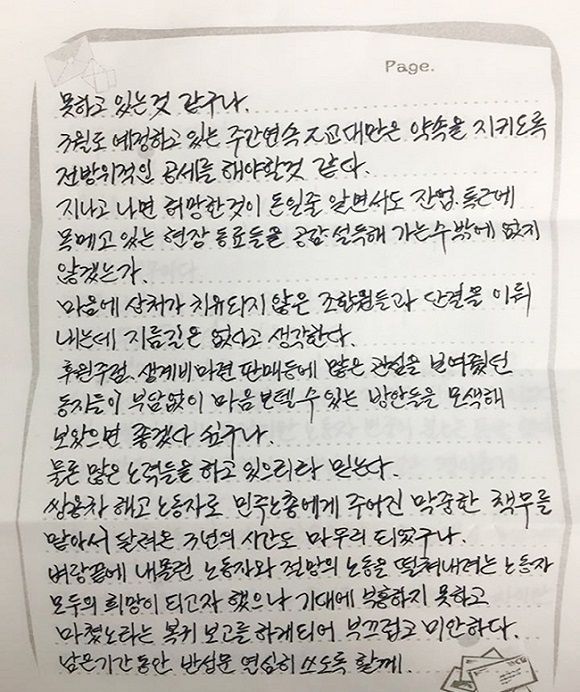 Page.
못하고 있는것 같구나.
3월로 예정하고 있는 주간연속 2교대만은 약속을 지키도록
전방위적인 공세를 해야할것 같다.
지나고 나면 허망한것이 돈일줄 알면서도 잔업.특근에
목메고 있는 현장 동료들을 공감 설득해 가는수밖에 없지
않겠는가.
마음에 상처가 치유되지 않은 조합원들과 단결을 이뤄
내는데 지름길은 없다고 생각한다.
후원주점, 생계비마련 판매등에 많은 관심을 보여줬던
동지들이 부담없이 마음보탤 수 있는 방안들을 모색해
보았으면 좋겠다 싶구나.
물론 많은 노력들을 하고 있으리라 믿는다.
쌍용차 해고 노동자로 민주노총에게 주어진 막중한 책무를
맡아서 달려온 3년의 시간도 마무리 되었구나.
벼랑끝에 내몰린 노동자와 절망의 노동을 떨쳐내려는 노동자
모두의 희망이 되고자 했으나 기대에 부흥하지 못하고
마쳤노라는 복귀 보고를 하게되어 부끄럽고 미안하다.
남은기간동안 반성문 열심히 쓰도록 할께.